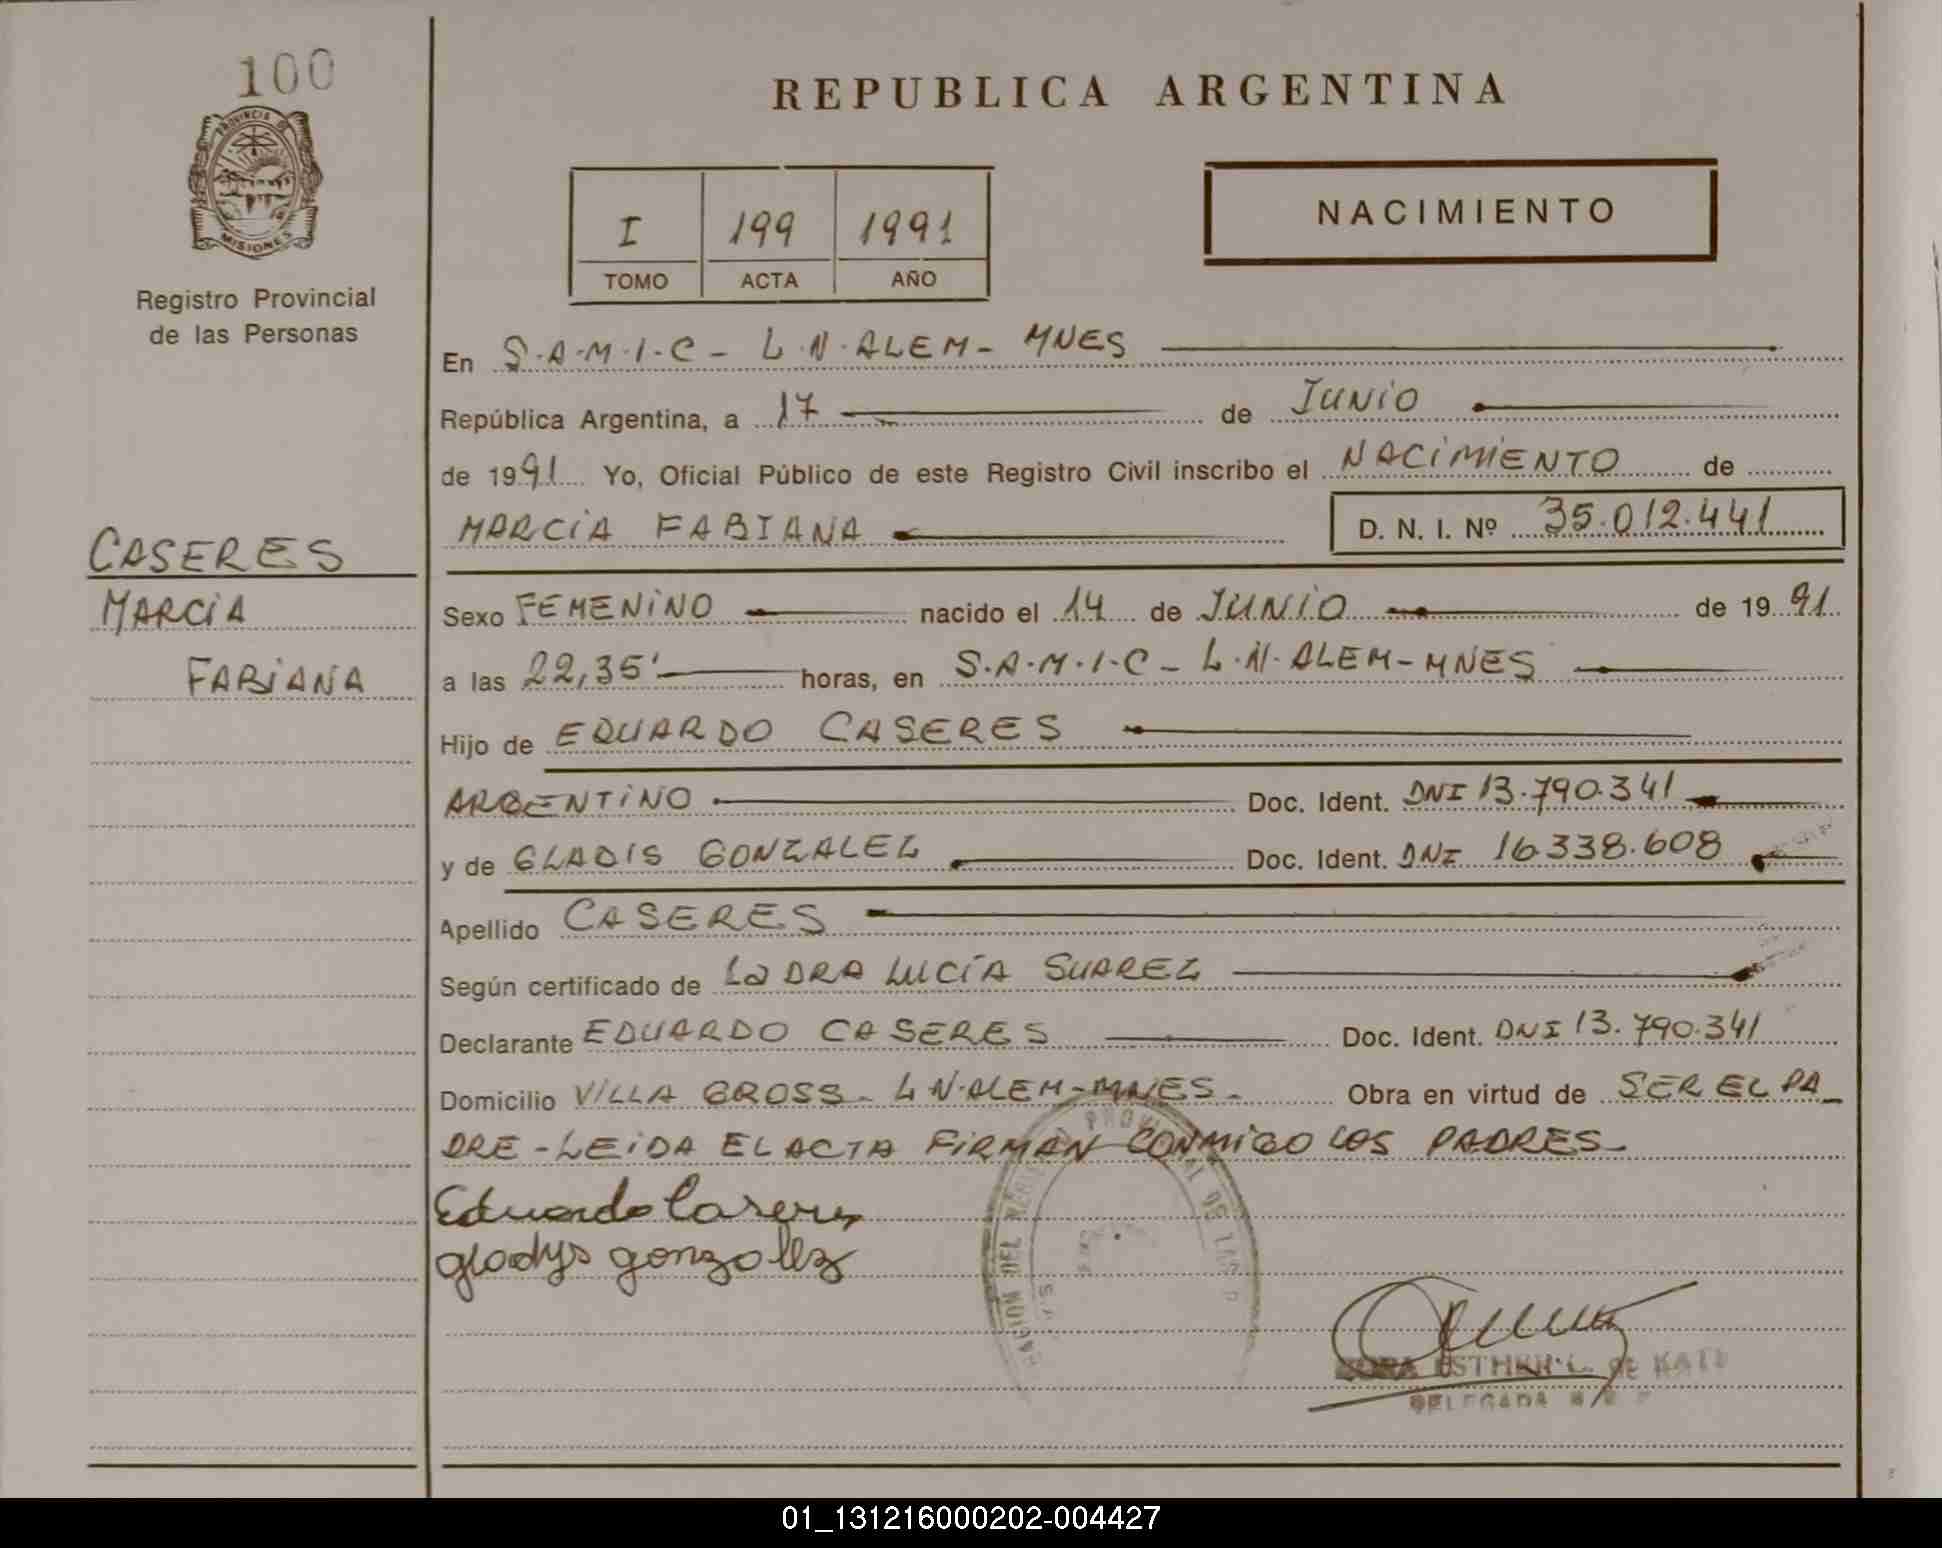 100
PROVINCIA DE
MISIONES
Registro Provincial
de las Personas
CASERES
MARCIA
FABIANA
REPUBLICA ARGENTINA
I 199 1991
TOMO ACTA AÑO
NACIMIENTO
En S.A.M.I.C - L.N.ALEM - MNES
República Argentina, a 17 de JUNIO
de 1991 Yo, Oficial Público de este Registro Civil inscribo el NACIMIENTO de
MARCIA FABIANA D. N. I. Nº 35.012.441
Sexo FEMENINO nacido el 14 de JUNIO de 1991
a las 22,35' horas, en S.A.M.I.C - L.N.ALEM - MNES
Hijo de EDUARDO CASERES
ARGENTINO Doc. Ident. DNI 13.790.341
y de GLADIS GONZALEZ Doc. Ident. DNI 16.338.608
Apellido CASERES
Según certificado de La DRA LUCÍA SUAREZ
Declarante EDUARDO CASERES Doc. Ident. DNI 13.790.341
Domicilio VILLA GROSS - L N.ALEM - MNES - Obra en virtud de SER EL PA_
DRE - LEIDA EL ACTA FIRMAN CONMIGO LOS PADRES -
Eduardo Caseres
gladys gonzalez
ESTHER L. de
DELEGADA
01_131216000202-004427